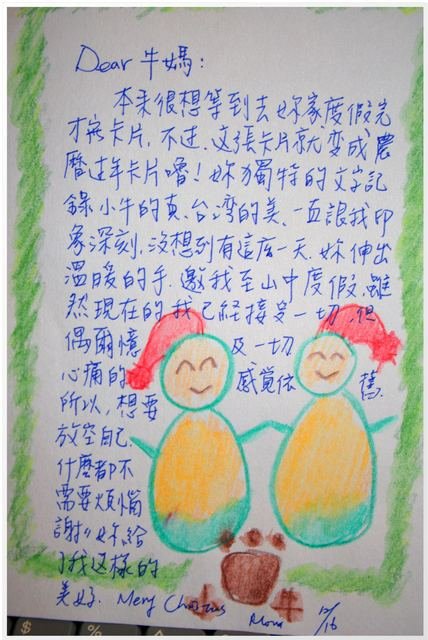 Dear 牛媽：
本來很想等到去妳家度假完
才寄卡片,不过,这張卡片就变成農
曆过年卡片嚕！妳獨特的文字記
錄小牛的真、台湾的美、一直讓我印
象深刻,沒想到有這庅一天,妳伸出
溫暖的手,邀我至山中度假,雖
然現在的我已經接受一切,但
偶爾憶及一切
心痛的感覺依舊.
所以,想要
放空自己
什麼都不
需要煩惱
謝謝妳給
了我这樣的
美好. Merry Christmas 12/16
小牛
$ %